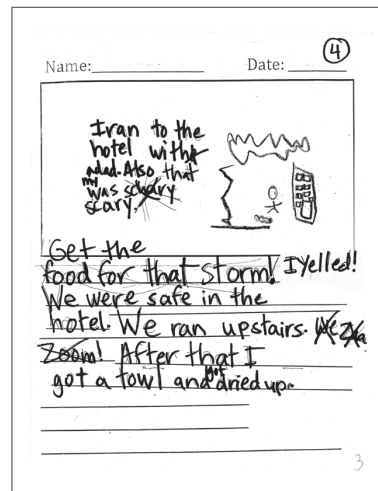 4
Name: Date:
I ran to the
hotel with
my dad. Also that
was scary
scary.
Get the
food for that storm! I Yelled!
We were safe in the
hotel. We ran upstairs. We
Zoom! After that I
got a towl and got dried up.
3